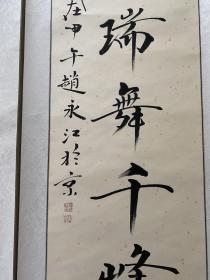 瑞舞千峰
在甲午趙永江於京